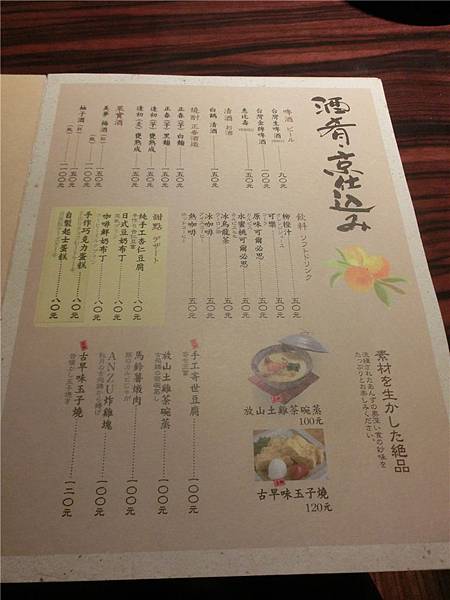 酒肴京仕込み
啤酒 ビール
台灣生啤酒 九〇元
台灣金牌啤酒 一〇〇元
惠比壽 一五〇元
清酒 お酒
白鶴 清酒 一五〇元
燒酎 正春酒造
正春(芋)白麴 一五〇元
正春(芋)黑麴 一五〇元
逢初(芋)甕熟成 一五〇元
逢初(麥)甕熟成 一五〇元
果實酒
美夢 梅酒(杯) 一五〇元
柚子酒(杯) 一五〇元
(瓶) 一一〇〇元
飲料 ソフトドリンク
柳橙汁 五〇元
可樂 五〇元
原味可爾必思 五〇元
水蜜桃可爾必思 五〇元
冰烏龍茶 五〇元
冰咖啡 五〇元
熱咖啡 五〇元
甜點 デザート
純手工杏仁豆腐 八〇元
日式豆奶布丁 八〇元
咖啡鮮奶布丁 八〇元
手作巧克力蛋糕 八〇元
自製起士蛋糕 八〇元
素材を生かした絶品
洗練されたあんずの奥深い食の妙味を
たっぷりとお楽しみください。
放山土雞茶碗蒸
100元
古早味玉子燒
120元
手工寄世豆腐 一〇〇元
放山土雞茶碗蒸 一〇〇元
馬鈴薯燉肉 一〇〇元
ANZU炸雞塊 一〇〇元
古早味玉子燒 一二〇元
昔懐かし玉子焼き